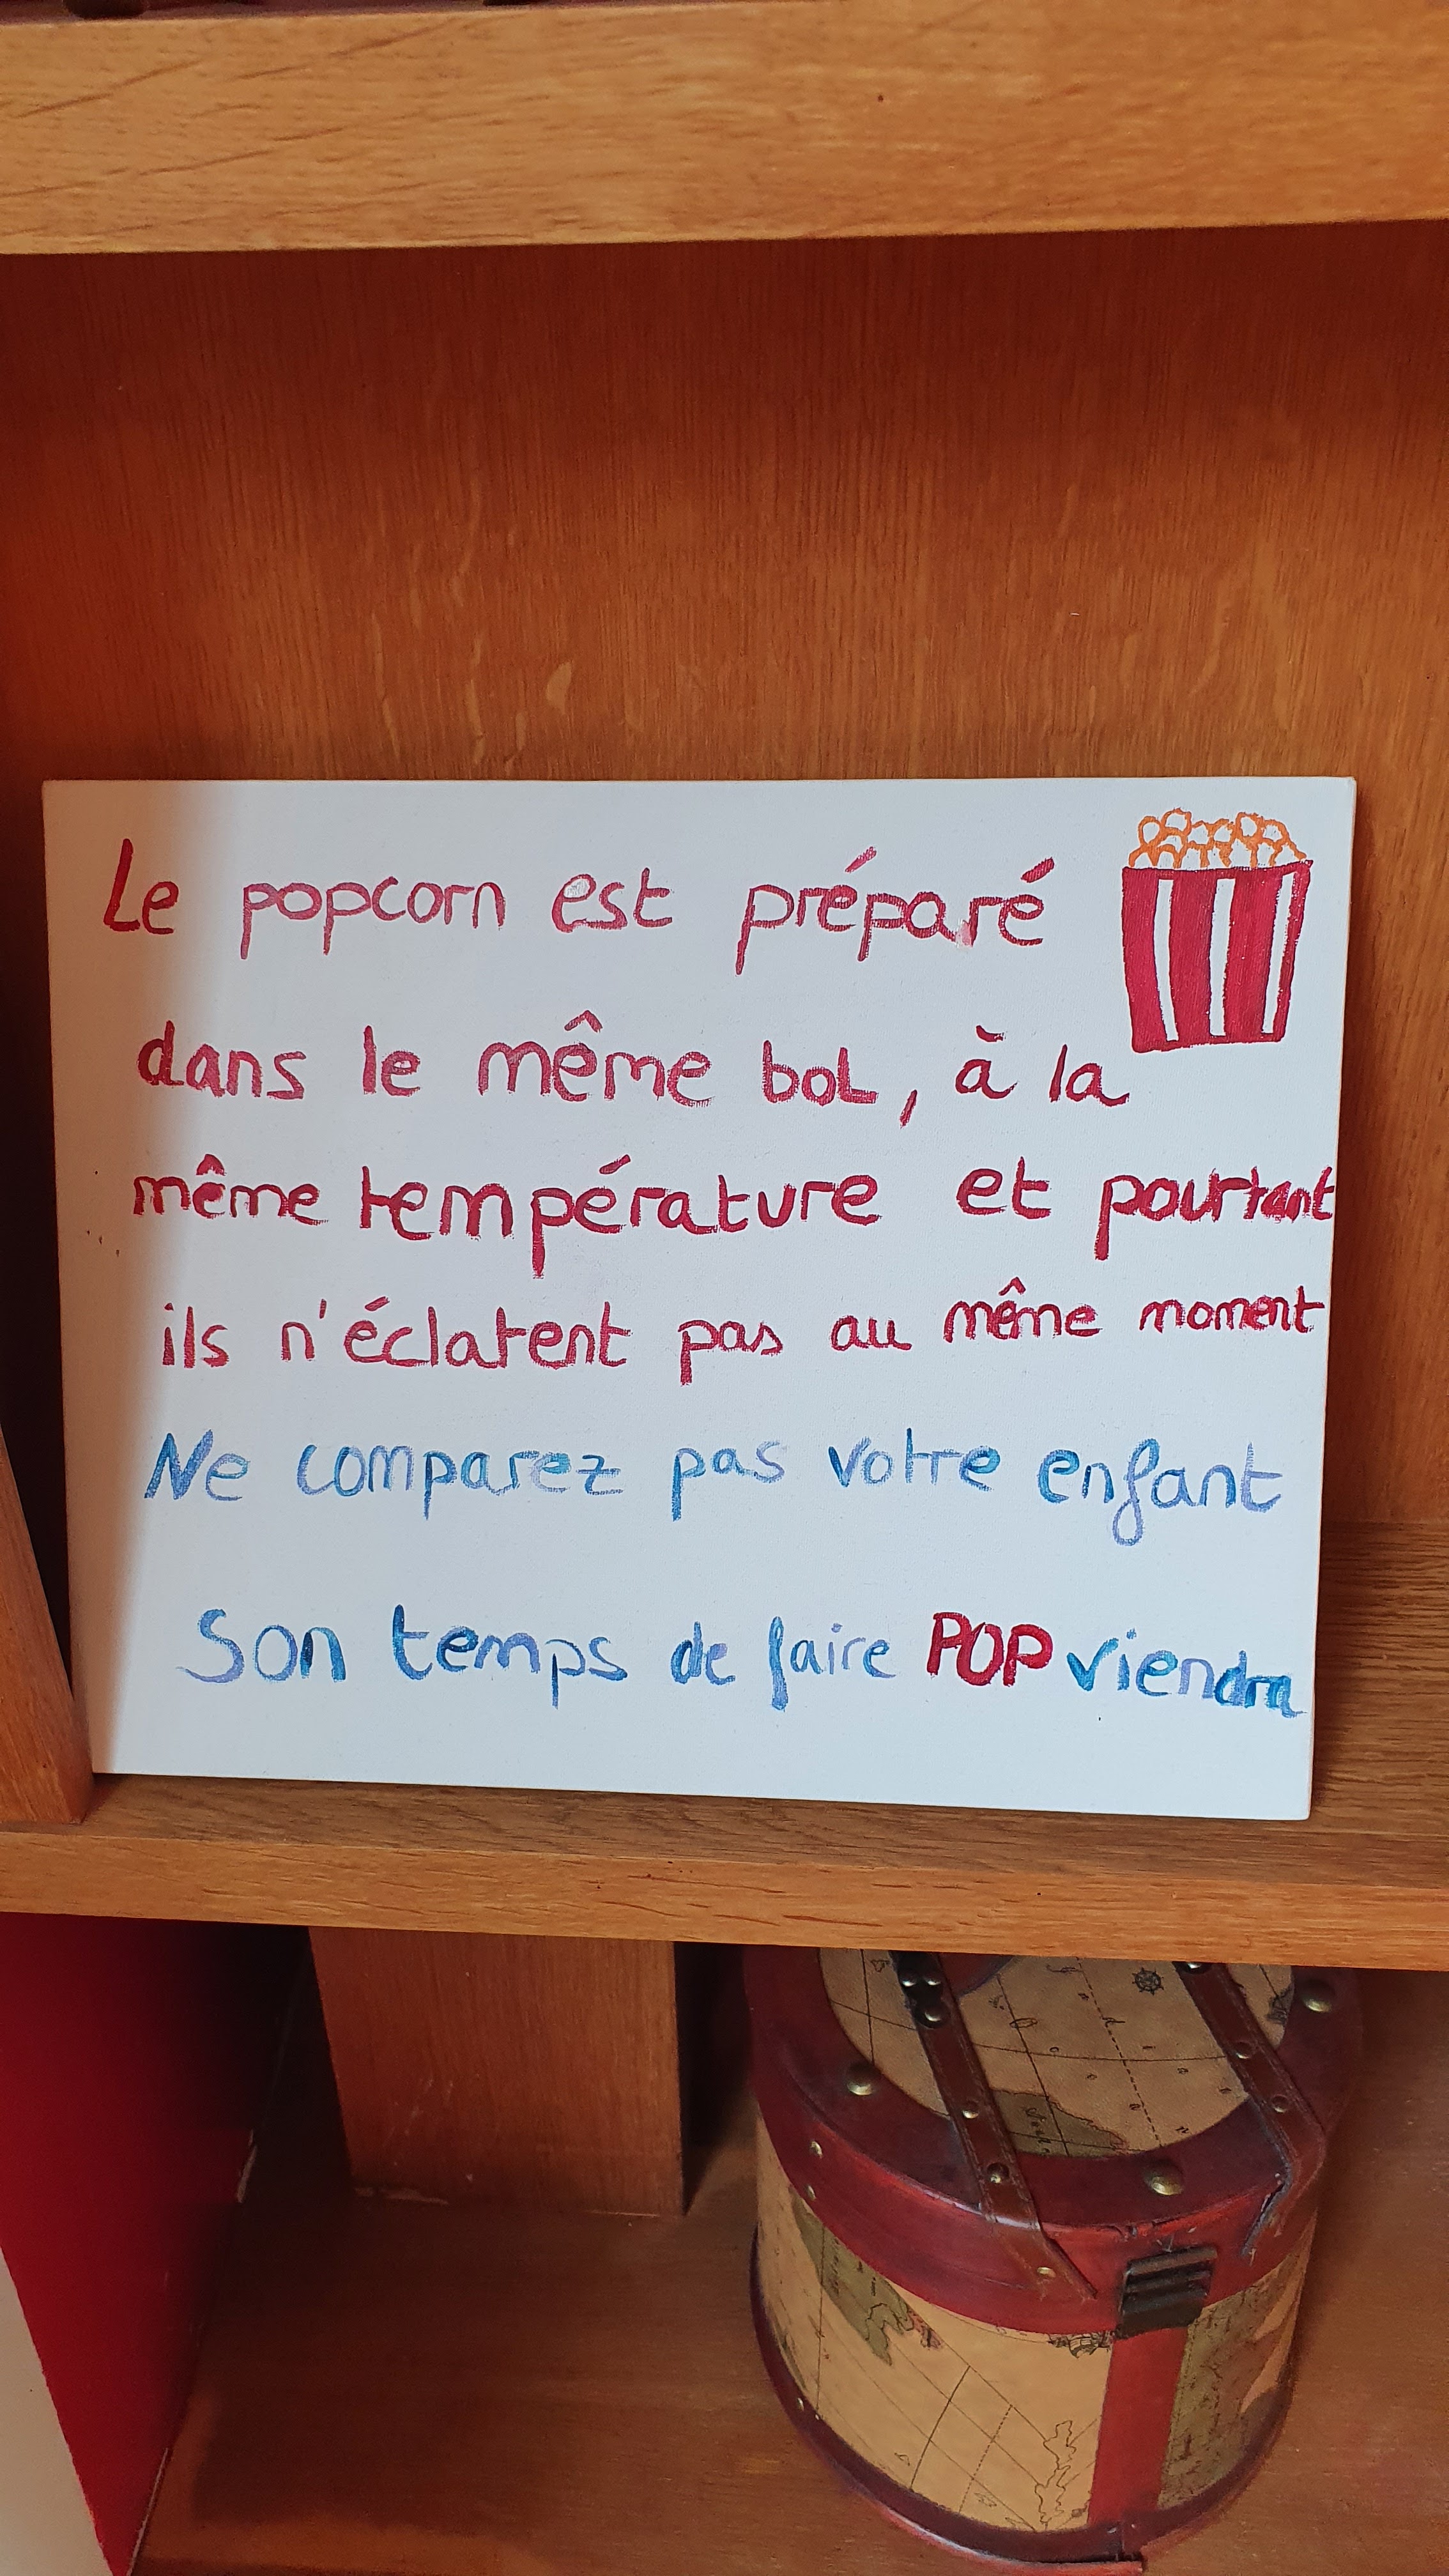 Le popcorn est préparé
dans le même bol, à la
même température et pourtant
ils n'éclatent pas au même moment
Ne comparez pas votre enfant
Son temps de faire POP viendra